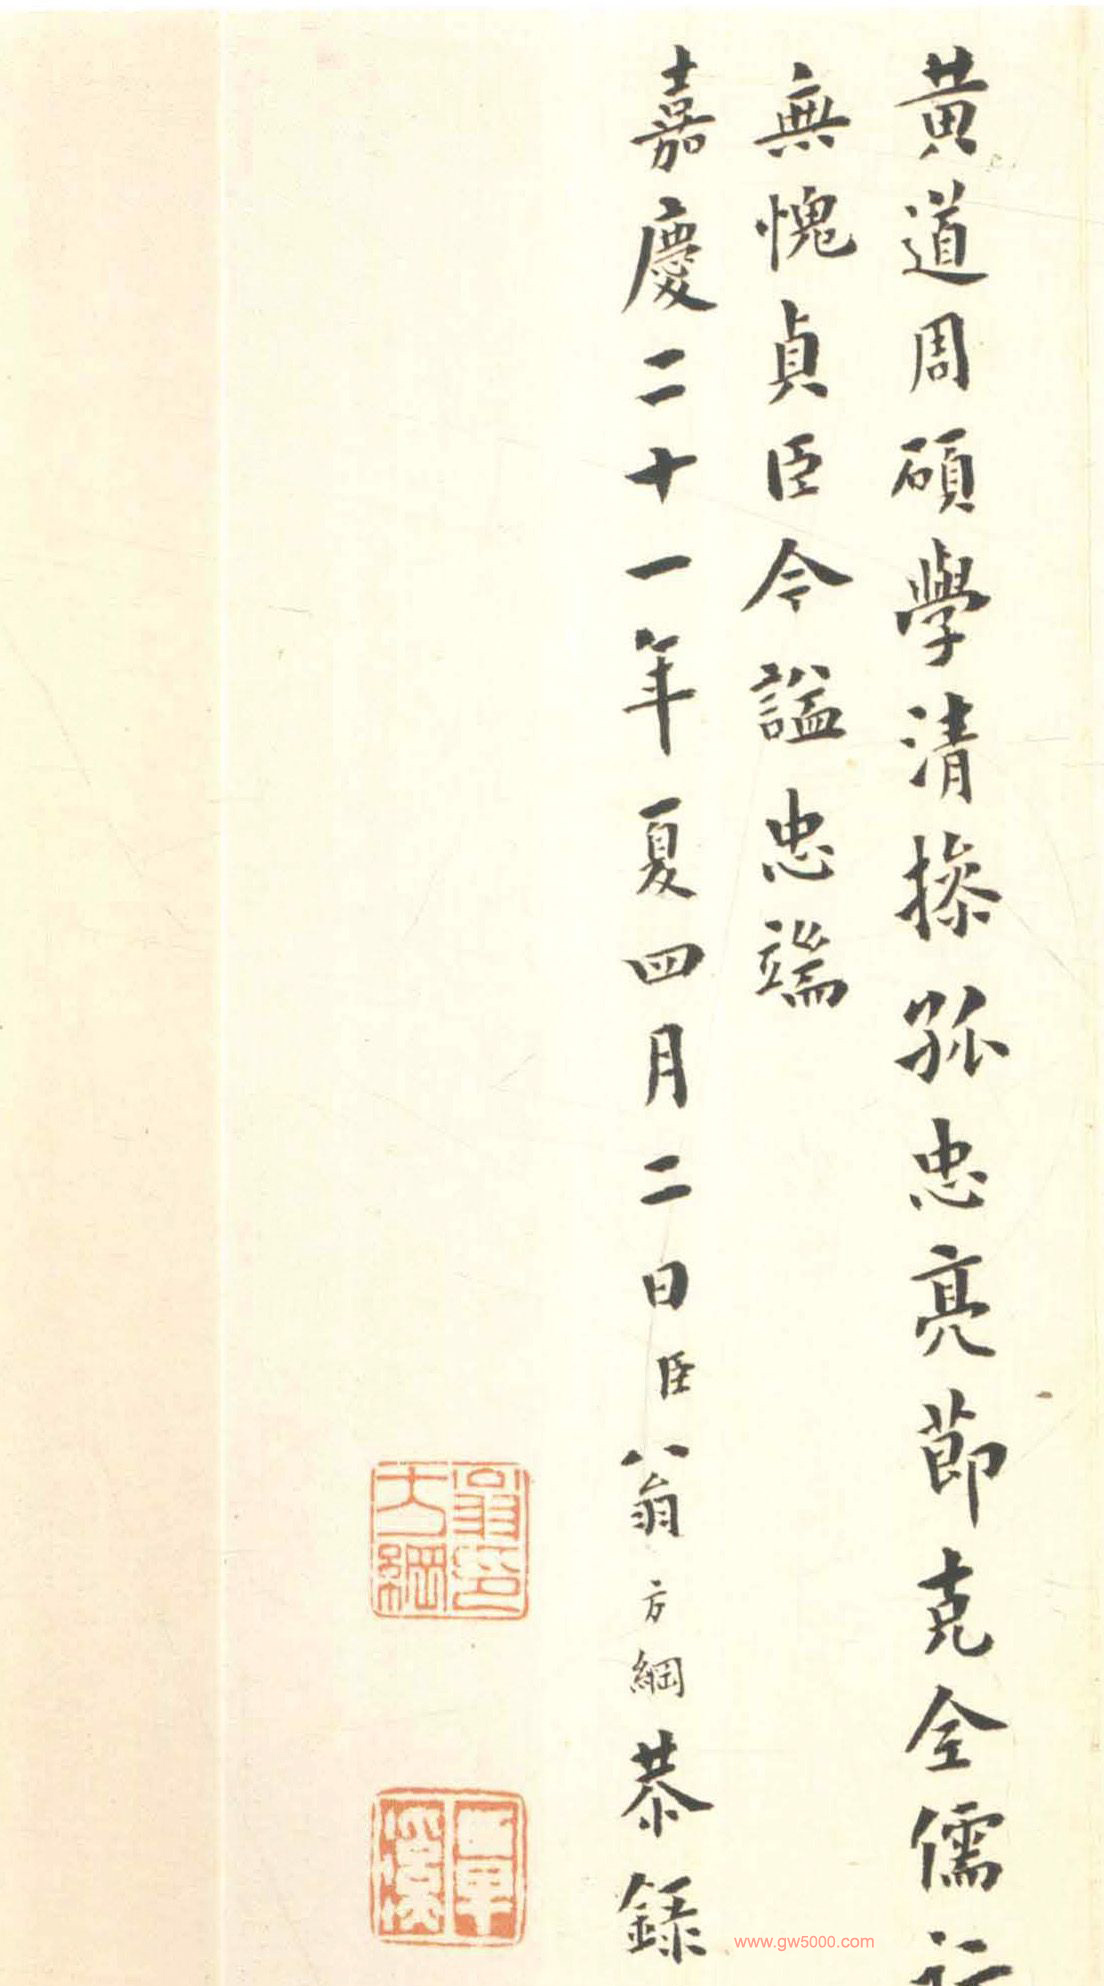 黃道周碩學清操孤忠亮節克全儒
無愧貞臣今諡忠端
嘉慶二十一年夏四月二日臣翁方綱恭錄
翁方綱
覃溪
www.gw5000.com